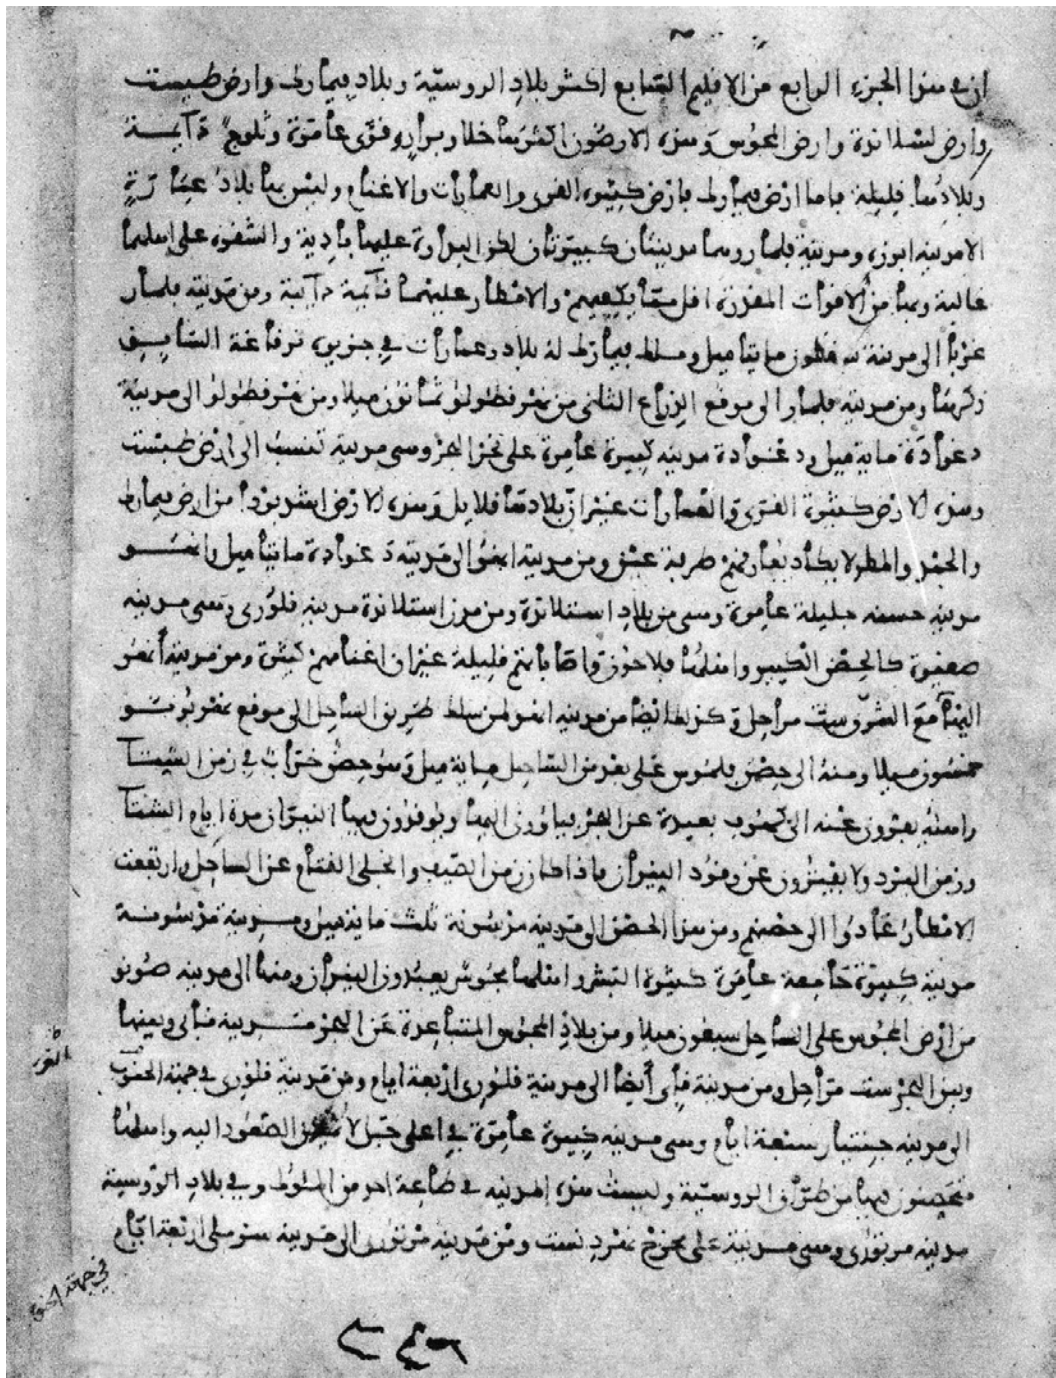 ان في هذا الجزء الرابع من الاقليم السابع اكثر بلاد الروسية وبلاد فيمارك وارض طبست
وارض لسلاندة وارض المجوس وهذه الارضون اكثرها خلا وبرار وقرى عامرة وثلوج دآيمة
وبلادها قليلة فاما ارض فيمارك فارض كثيرة القرى والعمارات والاغنام وليس بها بلاد عامرة
الا مدينة ابوزه ومدينة قلمار وهما مدينتان كبيرتان لكن البداوة عليهما بادية والشقوة على اهلهما
غالبة وبها من الاقوات المقدرة اقل مما يكفيهم والامطار عليهما قآيمة دآيبة ومن مدينة قلمار
غربا الى مدينة مايتا ميل وملك فيمارك له بلاد وعمارات في جزيرة نرفاغة السابق
ذكرها ومن مدينة قلمار الى موقع الذراع الثاني من نهر قطلو ثمانون ميلا ومن نهر قطلو الى مدينة
دغواذة ماية ميل ودغواذة مدينة كبيرة عامرة على نحر البحر وهي مدينة تنسب الى ارض طبست
وهذه الارض كثيرة القرى والعمارات غير ان بلادها قلايل وهذه الارض اشد بردا من ارض فيمارك
والجمد والمطر لا يكاد يفارقهم طرفة عين ومن مدينة انهو الى مدينة دغواذة مايتا ميل وانهو
مدينة حسنة جليلة عامرة وهي من بلاد استلاندة ومن مدن استلاندة مدينة قلوري وهي مدينة
صغيرة كالحصن الكبير واهلها فلاحون واصاباتهم قليلة غير ان اغنامهم كثيرة ومن مدينة انهو
اليها مع الشرق ست مراحل وكذلك ايضا من مدينة انهو لمن سلك طريق الساحل الى موقع نهر برنو
خمسون ميلا ومنه الى حصن فلموس على بعد من الساحل ماية ميل وهو حصن خراب في زمن الشتا
واهله يفرون عنه الى كهوف بعيدة عن البحر فياوون اليها ويوقدون فيها النيران مدة ايام الشتا
وزمن البرد ولا يفترون عن وقود النيران فاذا كان زمن الصيف وانجلى القتام عن الساحل وارتفعت
الامطار عادوا الى حصنهم ومن هذا الحصن الى مدينة مدسونة ثلث ماية ميل ومدينة مدسونة
مدينة كبيرة جامعة عامرة كثيرة البشر واهلها مجوس يعبدون النيران ومنها الى مدينة صونو
من ارض المجوس على الساحل سبعون ميلا ومن بلاد المجوس المتباعدة عن البحر مدينة قابي وبينها
وبين البحر ست مراحل ومن مدينة قابي ايضا الى مدينة قلوري اربعة ايام ومن مدينة قلوري في جهة الجنوب
الى مدينة جنتيار سبعة ايام وهي مدينة كبيرة عامرة في اعلى جبل لا يمكن الصعود اليه واهلها
متحصنون فيها من طراق الروسية وليست هذه المدينة في طاعة احد من الملوك وفي بلاد الروسية
مدينة مرتوري وهي مدينة على مخرج نهر دنست ومن مدينة مرتوري الى مدينة سرملي اربعة ايام
في جهة الجنوب